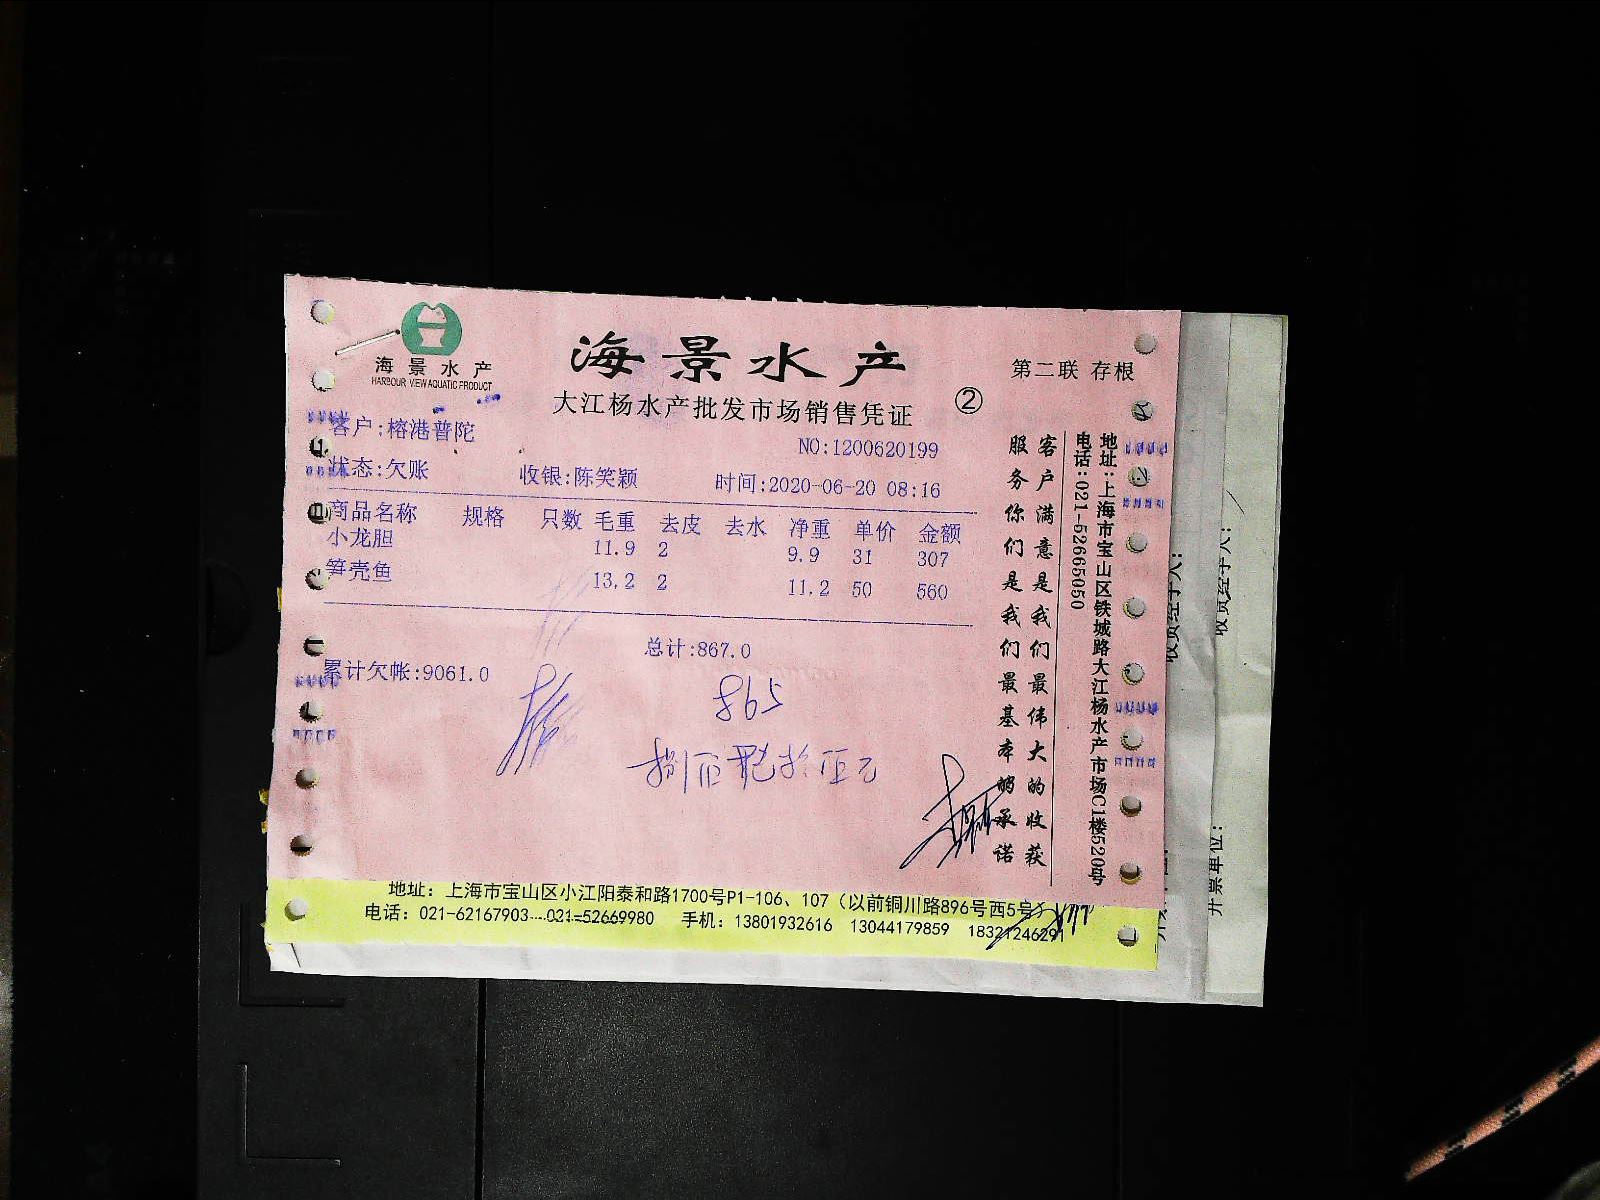 海景水产
HARBOUR VIEW AQUATIC PRODUCT
海景水产
第二联 存根
大江杨水产批发市场销售凭证
②
客户:榕港普陀
NO:1200620199
状态:欠账 收银:陈笑颖 时间:2020-06-20 08:16
商品名称 规格 只数 毛重 去皮 去水 净重 单价 金额
小龙胆 11.9 2 9.9 31 307
笋壳鱼 13.2 2 11.2 50 560
总计:867.0
累计欠帐:9061.0
865
捌佰陆拾伍元
客户满意是我们最伟大的收获
服务你们是我们最基本的承诺
地址:上海市宝山区铁城路大江杨水产市场C1楼520号
电话:021-52665050
地址: 上海市宝山区小江阳泰和路1700号P1-106、107（以前铜川路896号西5号）
电话: 021-62167903 021-52669980 手机: 13801932616 13044179859 18321246291
收货经手人:
收货经手人:
开票单位: